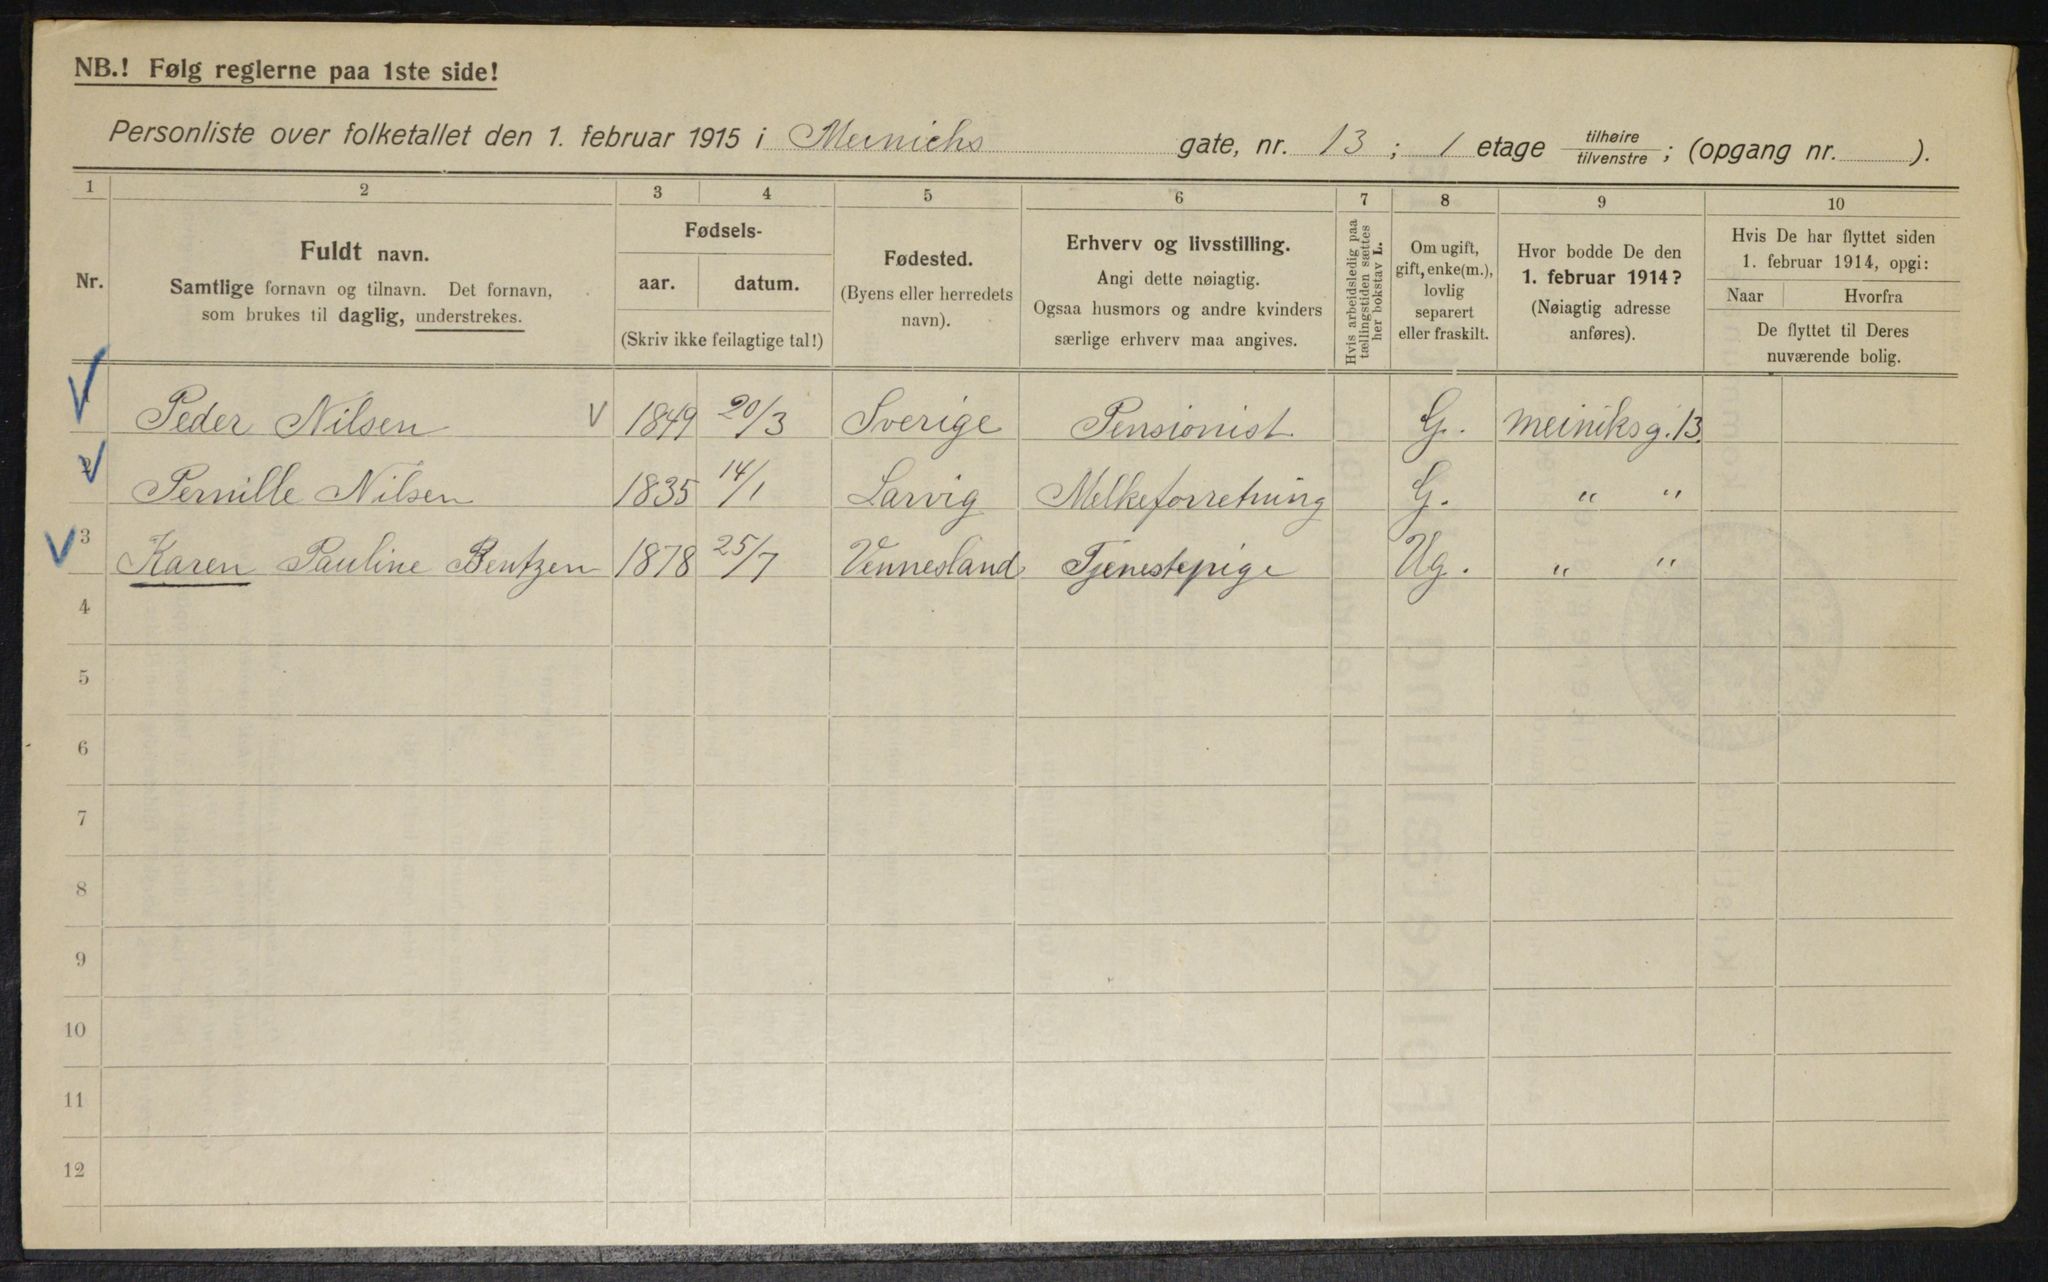 NB.! Følg reglerne paa 1ste side!
Personliste over folketallet den 1. februar 1915 i Meinichs gate, nr. 13; 1 etage tilhøire/tilvenstre; (opgang nr. ).
1 2 3 4 5 6 7 8 9 10
Nr.
Fuldt navn.
Samtlige fornavn og tilnavn. Det fornavn,
som brukes til daglig, understrekes.
Fødsels-
aar. datum.
(Skriv ikke feilagtige tal!)
Fødested.
(Byens eller herredets
navn).
Erhverv og livsstilling.
Angi dette nøiagtig.
Ogsaa husmors og andre kvinders
særlige erhverv maa angives.
Hvis arbeidsledig paa
tællingstiden sættes
her bokstav L.
Om ugift,
gift, enke(m.),
lovlig
separert
eller fraskilt.
Hvor bodde De den
1. februar 1914?
(Nøiagtig adresse
anføres).
Hvis De har flyttet siden
1. februar 1914, opgi:
Naar Hvorfra
De flyttet til Deres
nuværende bolig.
Peder Nilsen V 1849 20/3 Sverige Pensionist G. Meiniksg. 13
2 Pernille Nilsen 1835 14/1 Larvig Melkeforretning G. " "
3 Karen Pauline Bentzen 1878 25/7 Vennesland Tjenestepige Ug. " "
4
5
6
7
8
9
10
11
12